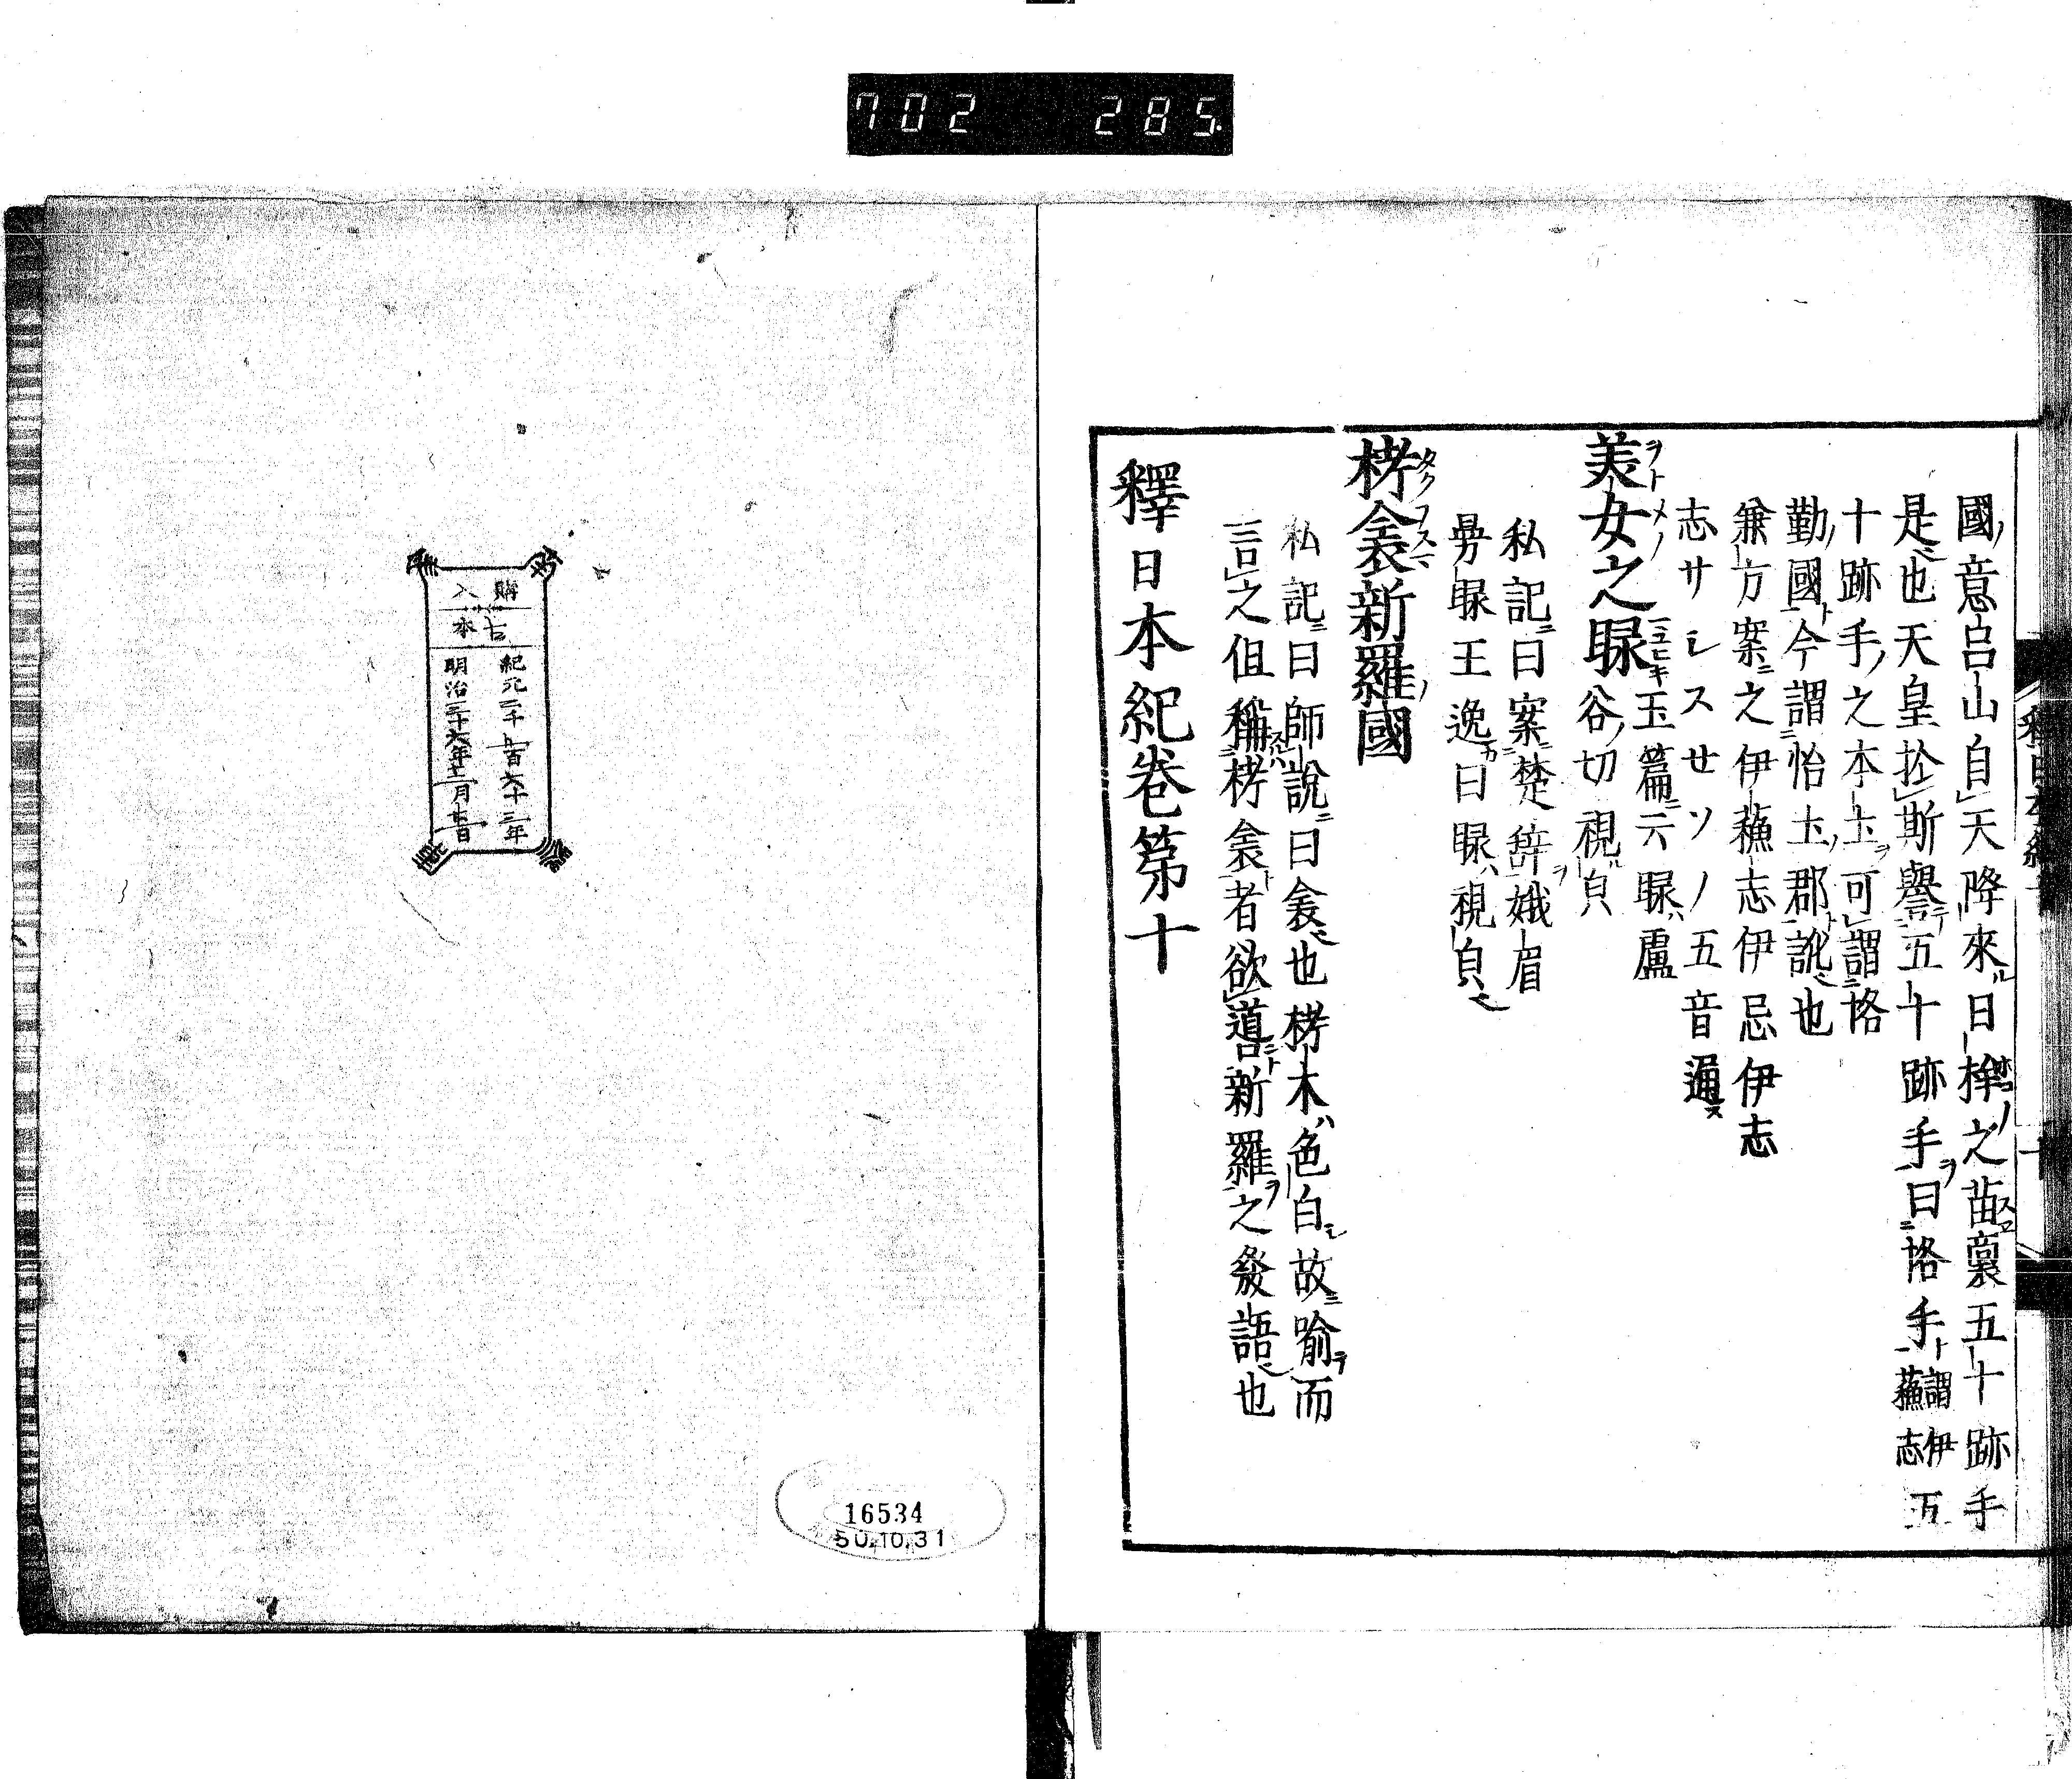 702 285
國意呂山自天降來日桙之苗裔五十跡手
是也天皇於斯譽五十跡手曰恪手謂伊蘓志五
十跡手之本土可謂恪
勤國今謂怡土郡訛也
兼方案之伊蘓志伊忌伊志
志サシスセソノ五音通
美女之睩玉篇云睩盧
谷切視皃
私記曰案楚辞娥眉
曼睩王逸曰睩視皃
栲衾新羅國
私記曰師說曰衾也栲木色白故喻而
言之但稱栲衾者欲噵新羅之發語也
釋日本紀卷第十
購入
古本
紀元二千五百六十三年
明治三十六年十二月廿日
16534
50.10.31